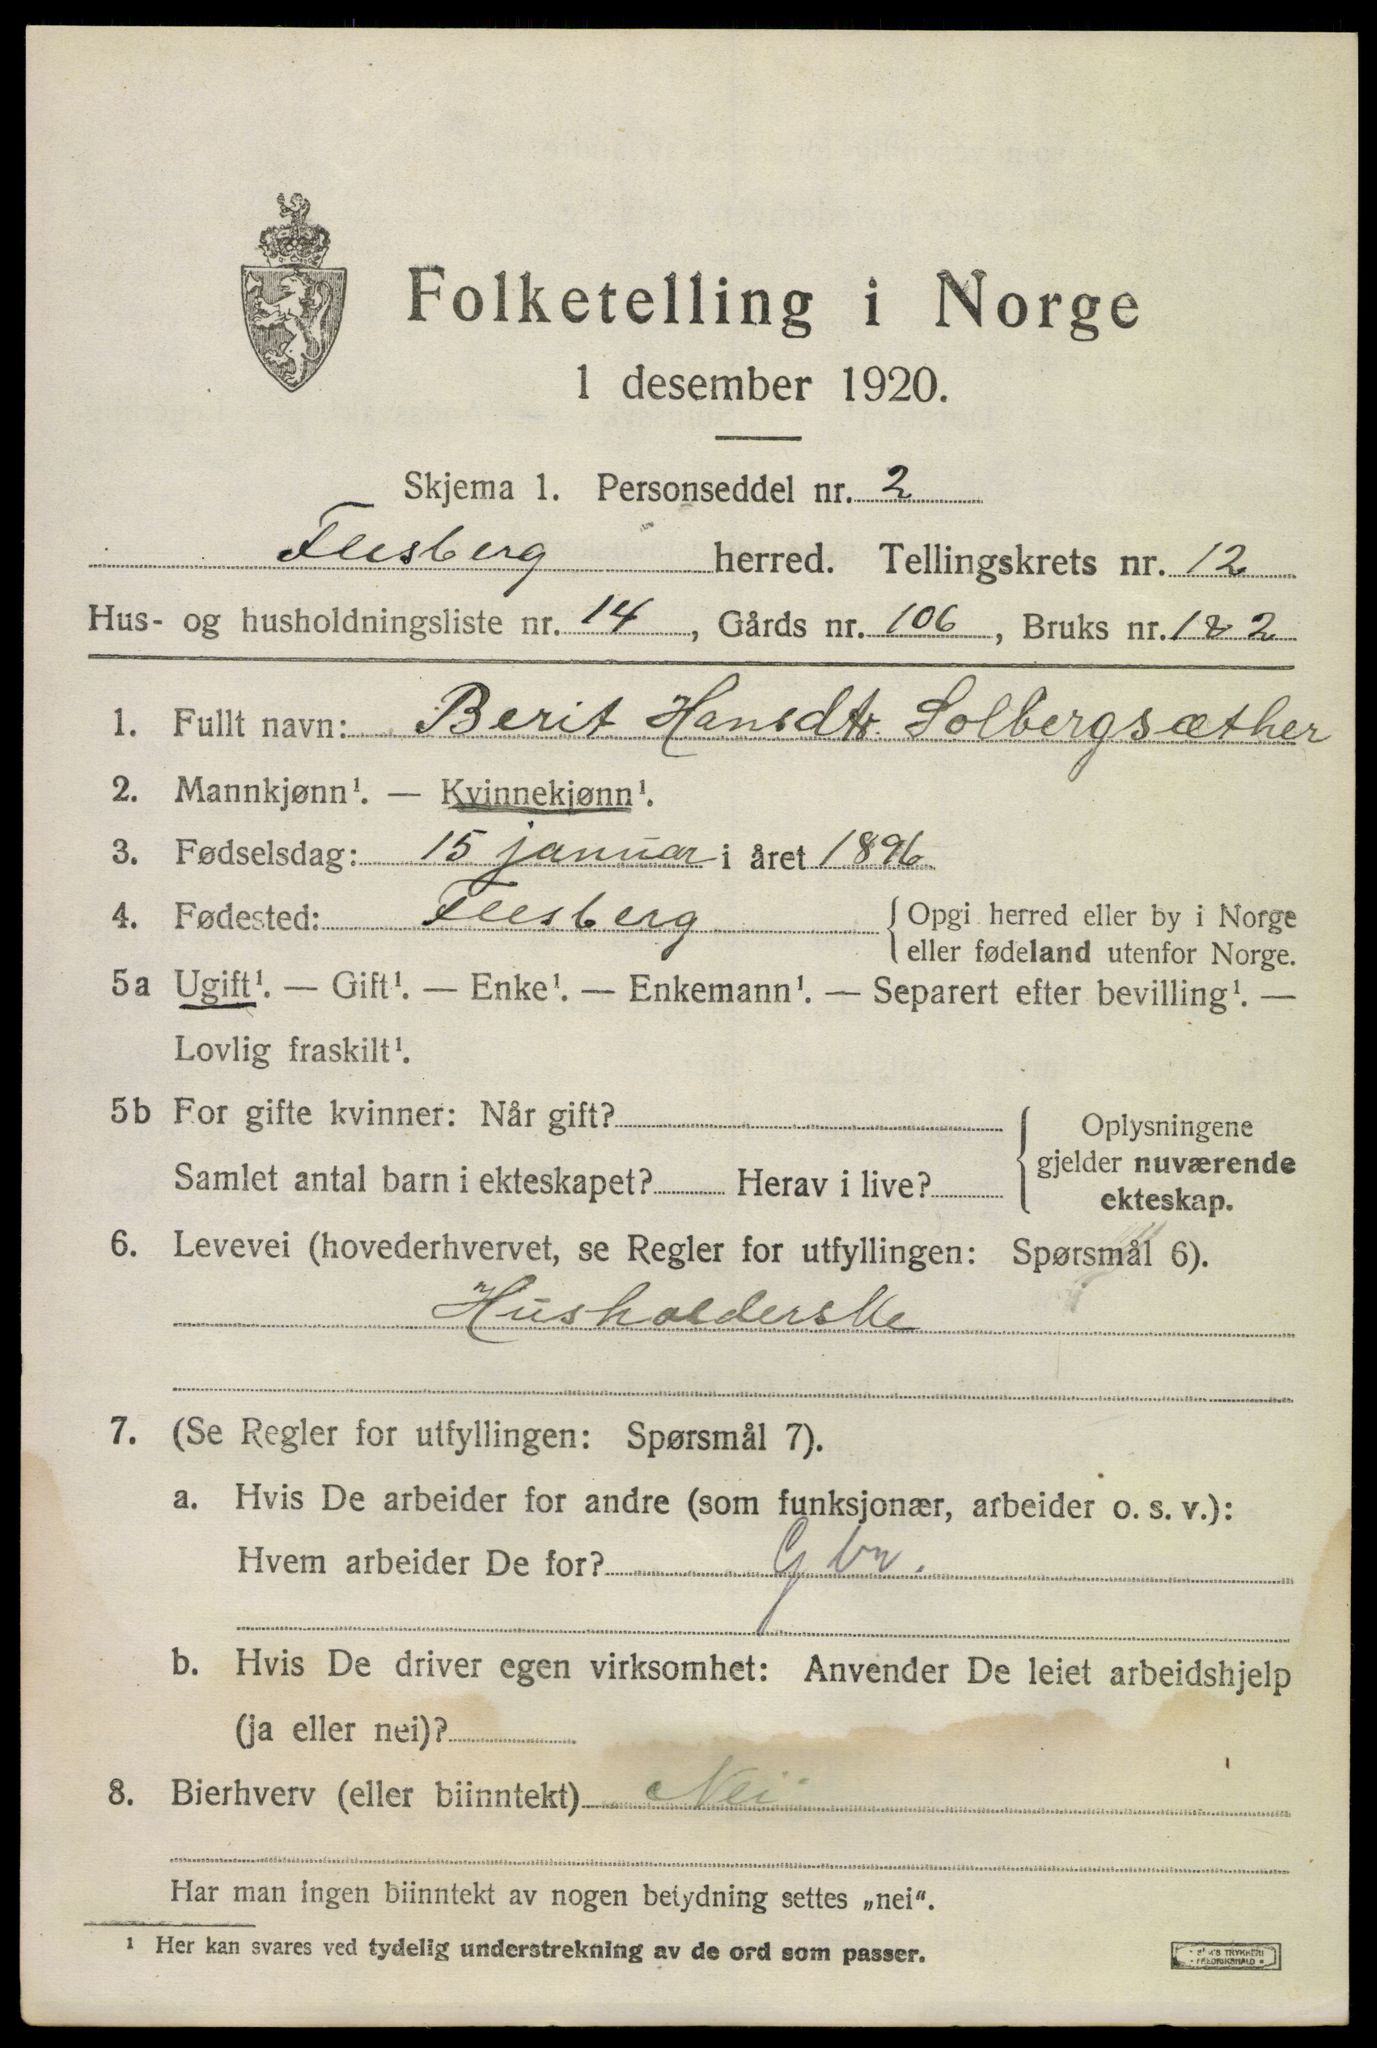 Folketelling i Norge
1 desember 1920.
Skjema 1. Personseddel nr. 2
Flesberg herred. Tellingskrets nr. 12
Hus- og husholdningsliste nr. 14, Gårds nr. 106, Bruks nr. 1 & 2
1. Fullt navn: Berit Hansdtr. Solbergsæther
2. Mannkjønn¹. — Kvinnekjønn¹.
3. Fødselsdag: 15 januar i året 1896
4. Fødested: Flesberg { Opgi herred eller by i Norge
eller fødeland utenfor Norge.
5a Ugift¹. — Gift¹. — Enke¹. — Enkemann¹. — Separert efter bevilling¹. —
Lovlig fraskilt¹.
5b For gifte kvinner: Når gift?
Samlet antal barn i ekteskapet? Herav i live?
{ Oplysningene
gjelder nuværende
ekteskap.
6. Levevei (hovederhvervet, se Regler for utfyllingen: Spørsmål 6).
Husholderske
7. (Se Regler for utfyllingen: Spørsmål 7).
a. Hvis De arbeider for andre (som funksjonær, arbeider o. s. v.):
Hvem arbeider De for? Gbr.
b. Hvis De driver egen virksomhet: Anvender De leiet arbeidshjelp
(ja eller nei)?
8. Bierhverv (eller biinntekt) Nei
Har man ingen biinntekt av nogen betydning settes „nei“.
¹ Her kan svares ved tydelig understrekning av de ord som passer.
TRYKKERI
FREDRIKSHALD